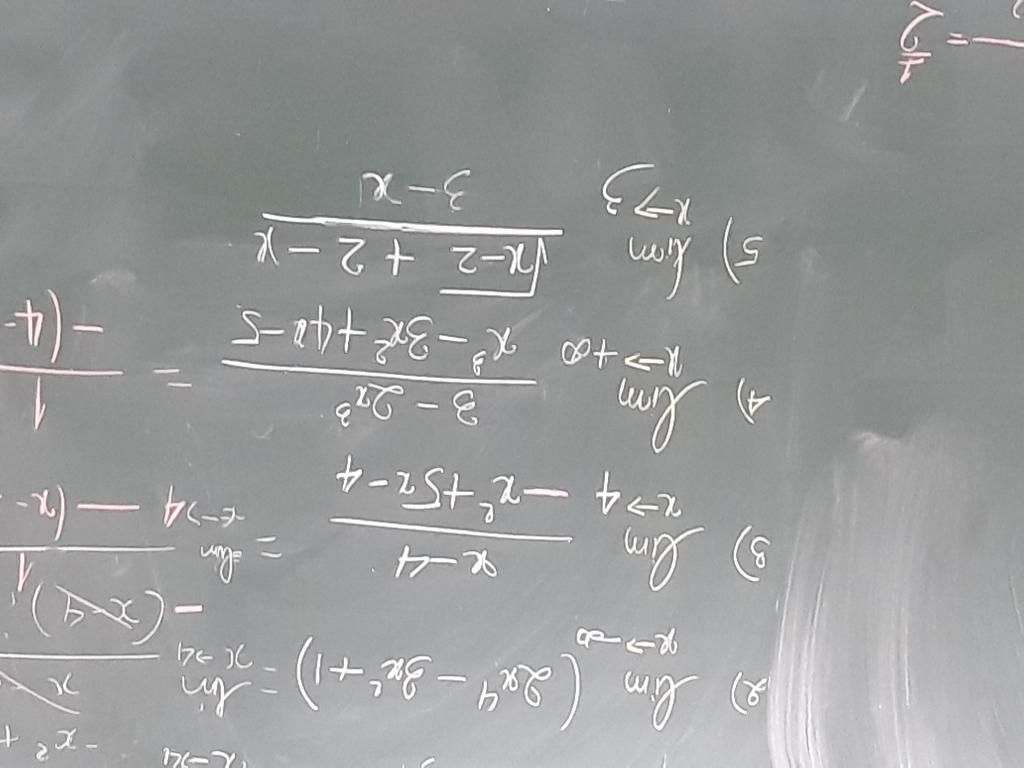 x->4 -x² +
2) lim x->-∞ (2x⁴ - 3x² + 1) = lim x->4
-(x-4)
3) lim x->4 (x-4)/(-x²+5x-4) = lim x->4 1/-(x-
4) lim x->+∞ (3-2x³)/(x³-3x²+4x-5) = 1/-(4-
5) lim x->3 (√(x-2) + 2 - x)/(3-x)
= 1/2